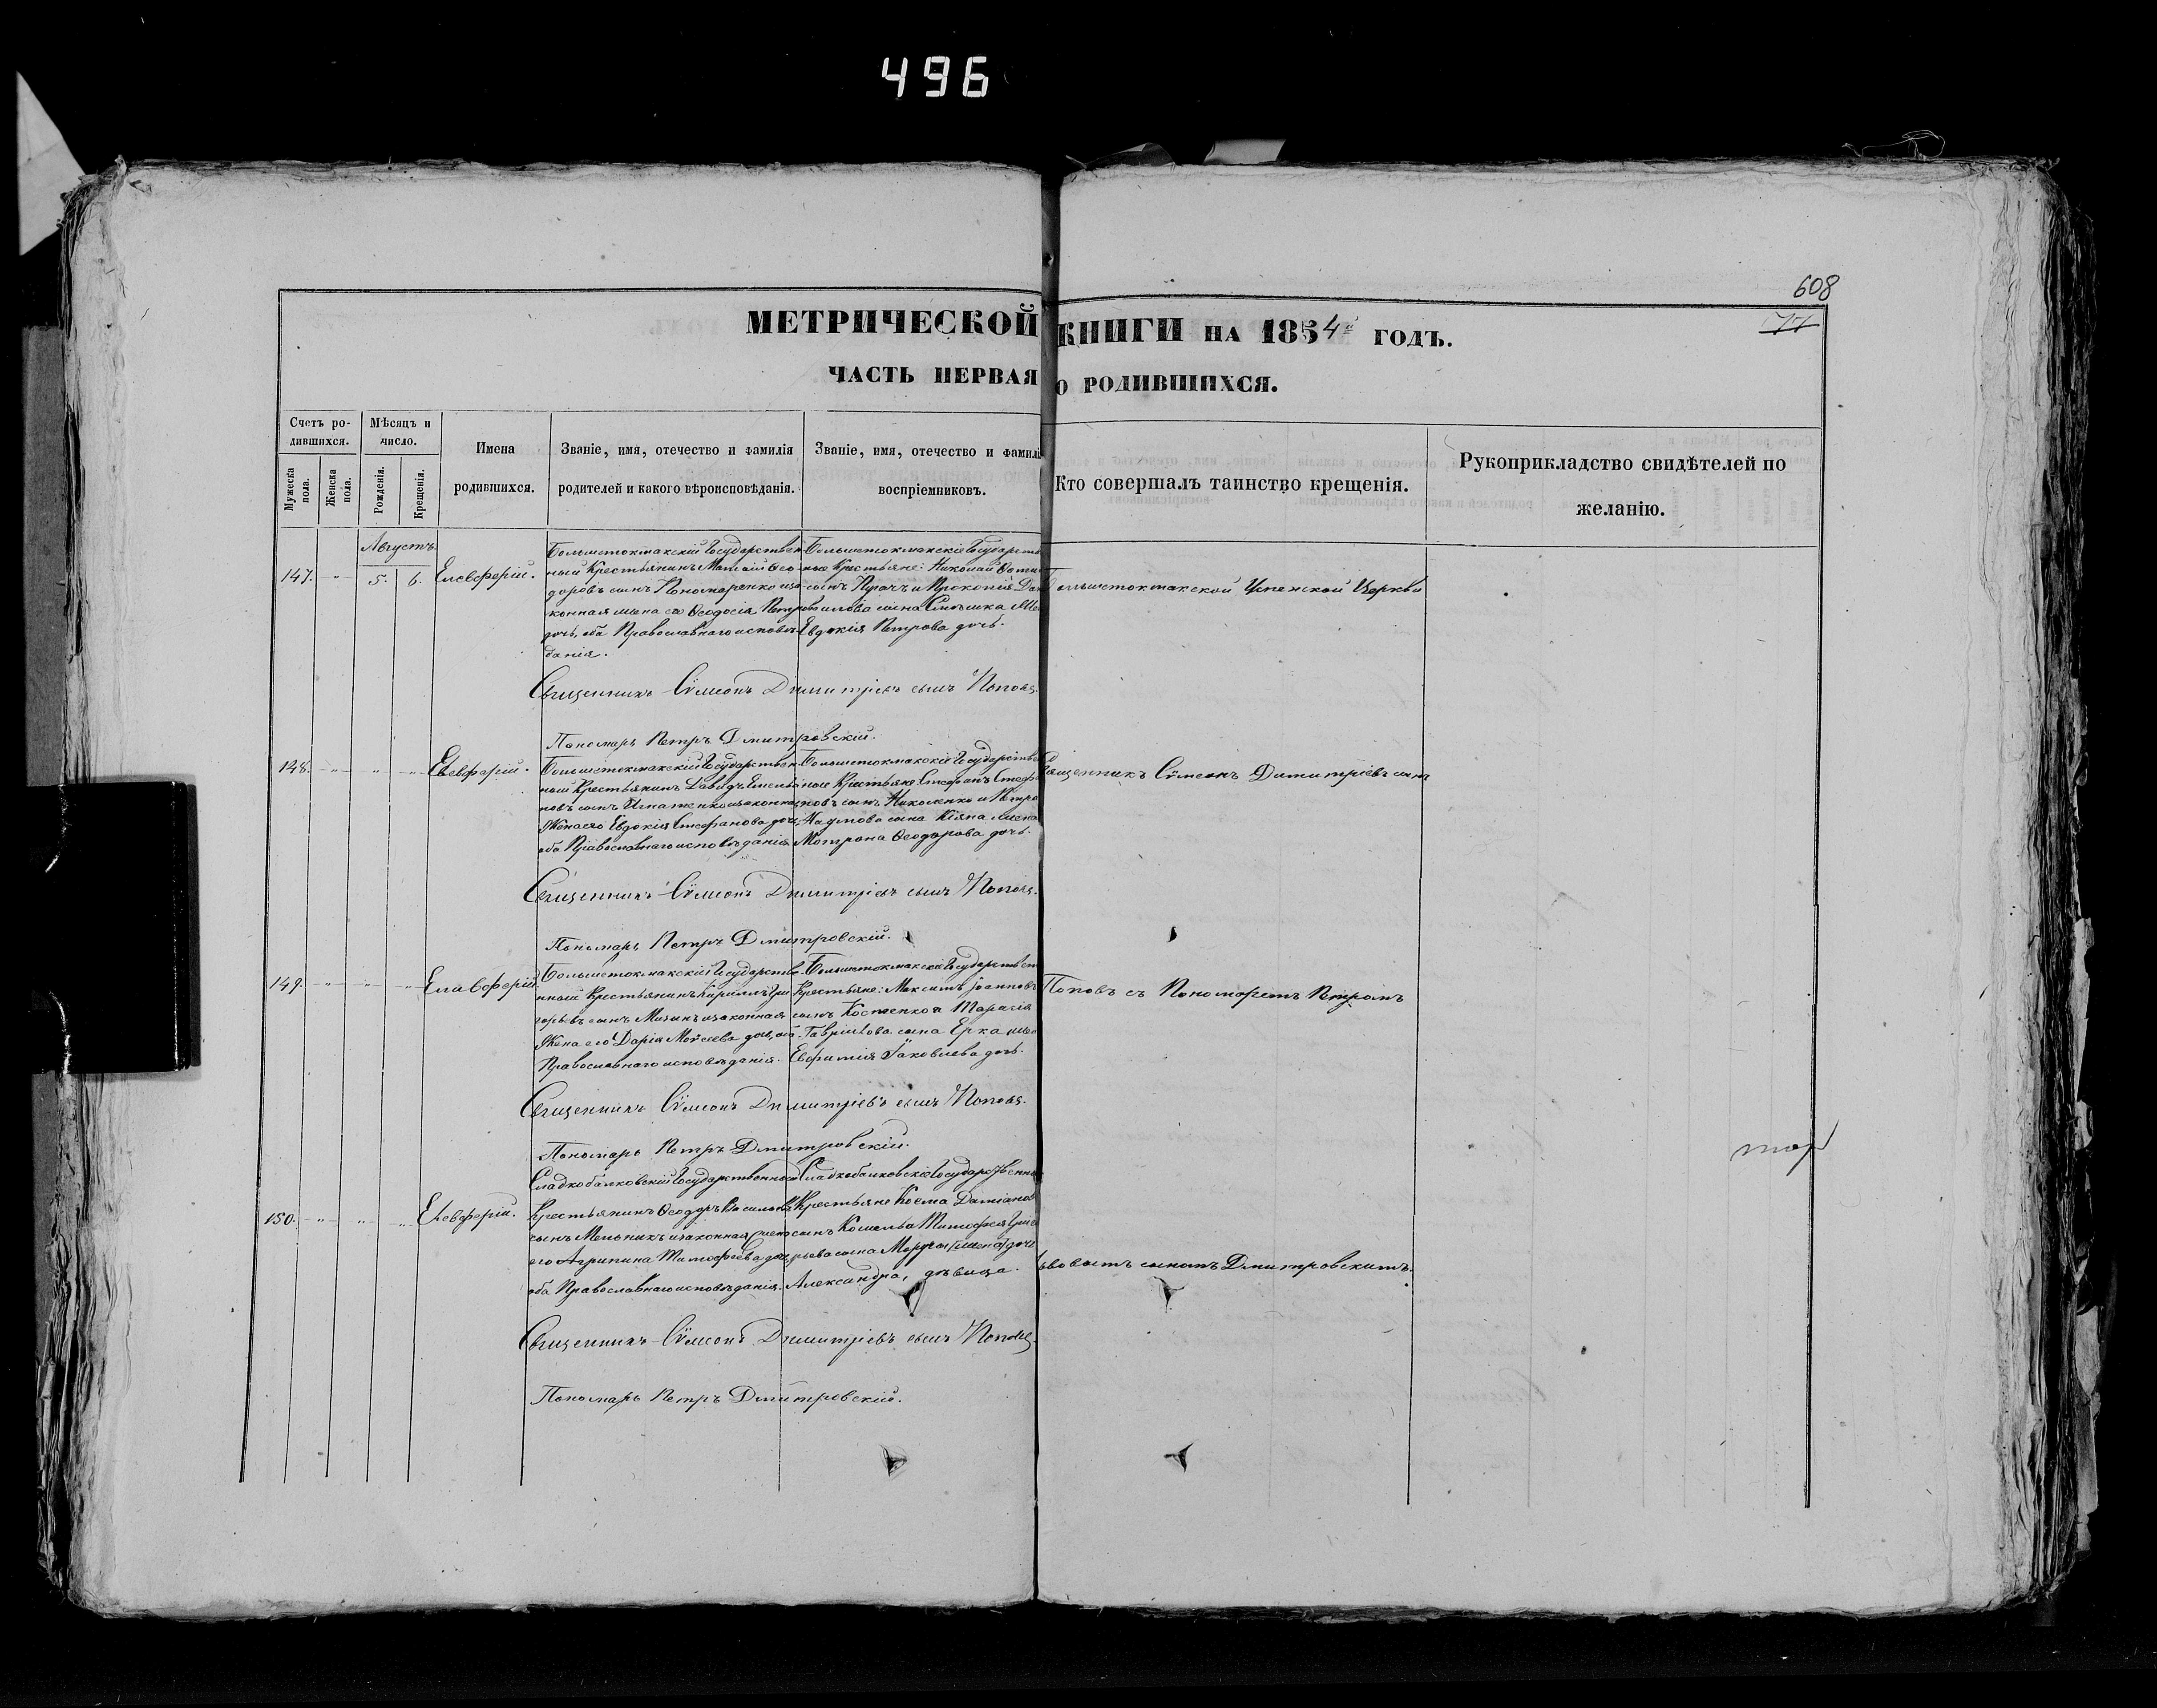 496
608
77
МЕТРИЧЕСКОЙ КНИГИ НА 1854й ГОДЪ.
ЧАСТЬ ПЕРВАЯ О РОДИВШИХСЯ.
Счетъ ро-
дившихся.
Мужеска
пола.
Женска
пола.
Мѣсяцъ и
число.
Рожденія.
Крещенія.
Имена
родившихся.
Званіе, имя, отечество и фамилія
родителей и какого вѣроисповѣданія.
Званіе, имя, отечество и фамилі
воспріемниковъ.
Кто совершалъ таинство крещенія.
Рукоприкладство свидѣтелей по
желанію.
Августъ
147. 5. 6. Елевферій.
Большетокмакскій Государствен-
ный Крестьянинъ Матѳій Ѳео-
доровъ сынъ Пономаренко и за-
конная жена его Ѳеодосія Петрова
дочь, оба Православнаго исповѣ-
данія.
Большетокмакскіе Государств
ные Крестьяне: Николай
сынъ Прачъ и Прокопія
сына жена
Евдокія Петрова дочь.
Большетокмакской Успенской Церкви
Священникъ Сѵмеонъ Димитріевъ сынъ Поповъ.
Пономарь Петръ Дмитровскій.
148. Елевферій.
Большетокмакскій Государствен-
ный Крестьянинъ Давидъ Емелья-
новъ сынъ Игнатенко и законная
Жена его Евдокія Стефанова дочь,
оба Православнаго исповѣданія.
Большетокмакскіе Государстве
ные Крестьяне Стефанъ Стефа
новъ сынъ Николенко и Петра
Наумова сына Кіяна жена
Мотрона Ѳеодорова дочь.
Священникъ Сѵмеонъ Димитріевъ сынъ
Священникъ Сѵмеонъ Димитріевъ сынъ Поповъ.
Пономарь Петръ Дмитровскій.
149. Елевферій.
Большетокмакскій Государстве-
нный Крестьянинъ Кириллъ Гри
горьевъ сынъ и законная
Жена его Дарія Моѵсеева дочь, оба
Православнаго исповѣданія.
Большетокмакскіе Государствен
Крестьяне: Максимъ Іоанновъ
сынъ Костенко и Тарасія
Гавріилова сына Ерка жена
Евфимія Іаковлева дочь.
Поповъ съ Пономаремъ Петромъ
Священникъ Сѵмеонъ Димитріевъ сынъ Поповъ.
Пономарь Петръ Дмитровскій.
150. Елевферій.
Сладкобалковскій Государственный
Крестьянинъ Ѳеодоръ Васильевъ
сынъ Мельникъ и законная жена
его Агрипина Тимофеева дочь,
оба Православнаго исповѣданія.
Сладкобалковскіе Государственны
Крестьяне Косма Даміановъ
сынъ и Тимофея Григо
рьева сына дочь
Александра, дѣвица.
сыномъ Дмитровскимъ.
Священникъ Сѵмеонъ Димитріевъ сынъ Поповъ.
Пономарь Петръ Дмитровскій.